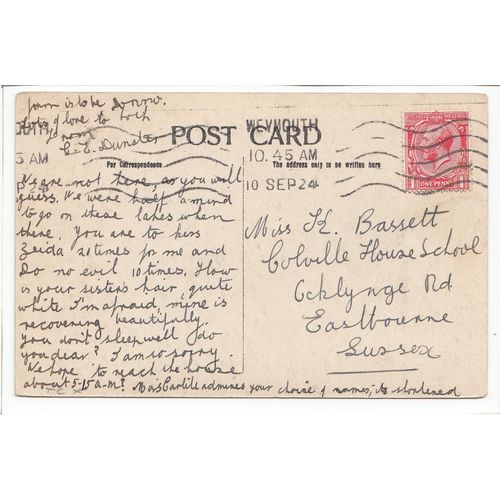 to be
Lots of love to both
from
POST CARD
For Correspondence
The address only to be written here
WEYMOUTH
10.45 AM
10 SEP 24
5 AM
ONE PENNY
We are not there, as you will
guess. We were half a mind
to go on these lakes when
there. You are to kiss
Zeida 21 times for me and
do no evil 10 times. How
is your sisters hair, quite
white I'm afraid, mine is
recovering beautifully.
you don't sleep well do
you dear? I am so sorry.
We hope to reach the house
about 5-15 a.m? Miss Carlile admires your choice of names, its shortened
Miss K. Bassett
Colville House School
Ocklynge Rd
Eastbourne
Sussex